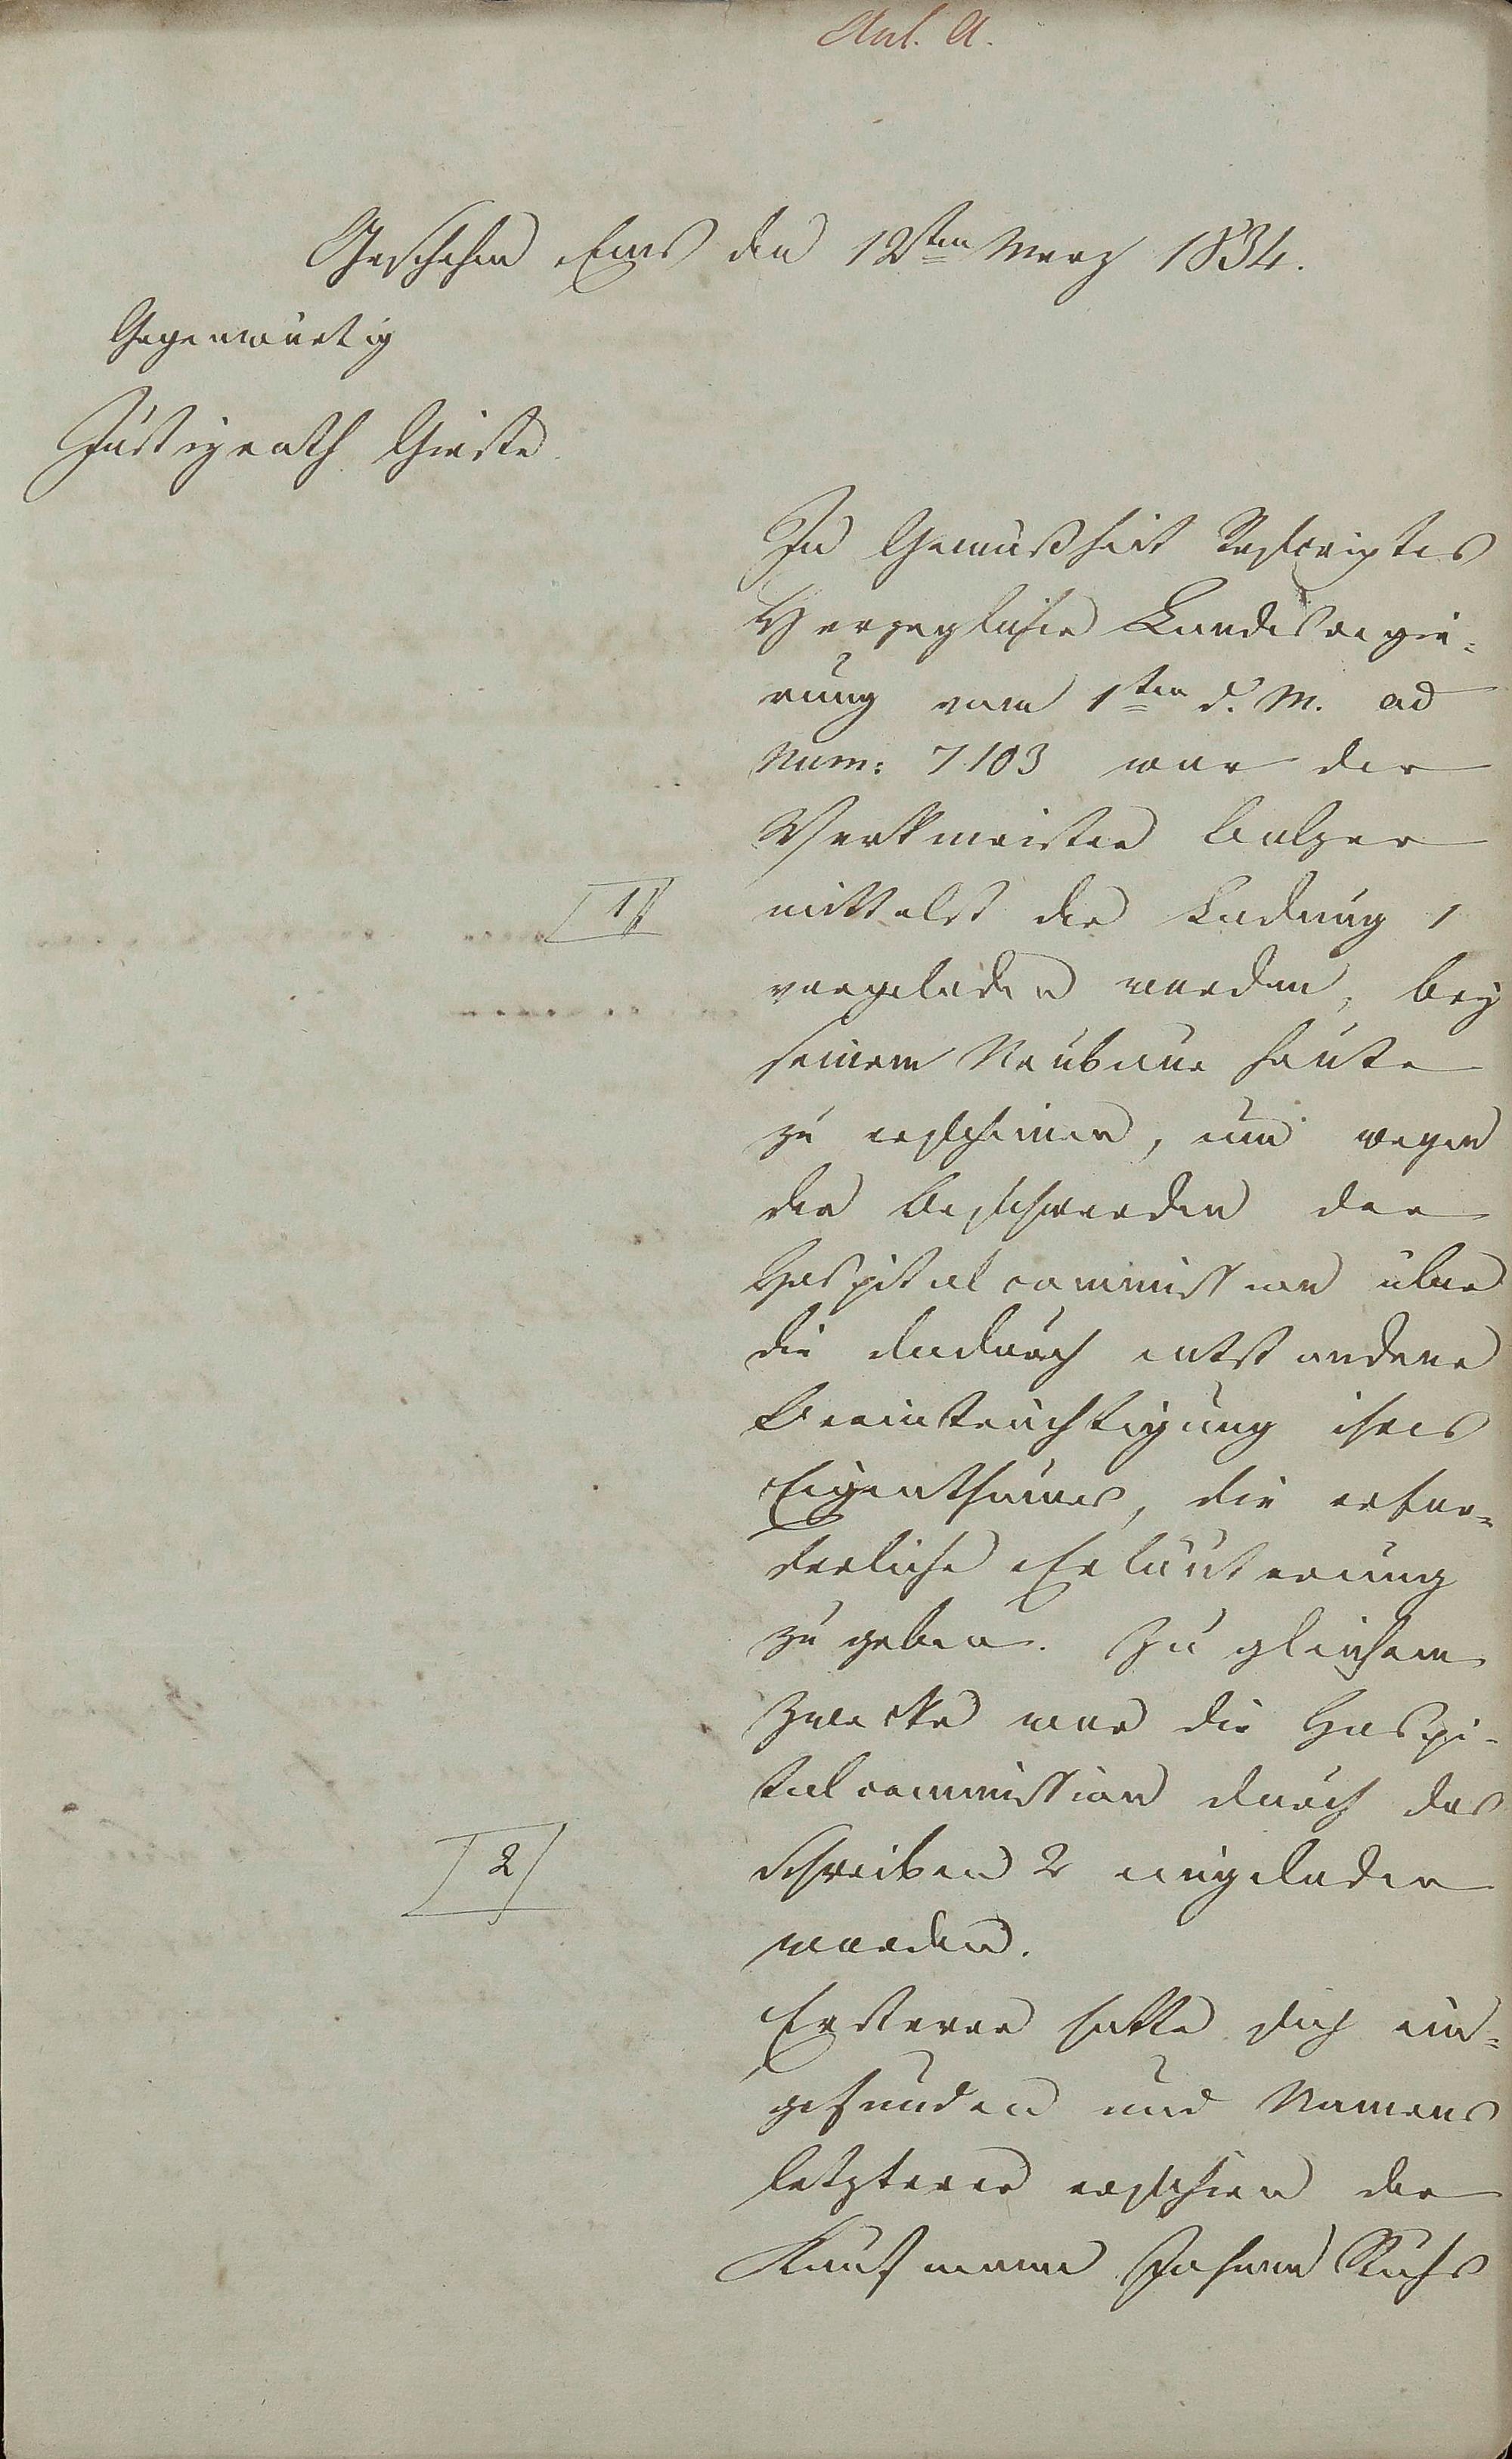 Anl. A.
Geschehen Ems den 12ten Merz 1834.
Gegenwärtig
Justizrath Gieße.
In Gemäßheit Rescriptes
Herzoglicher Landesregie-
rung vom 1ten d. M. ad
Num: 7103 war der
Werkmeister Balzer
1
mittelst der Ladung 1
vorgeladen worden, bey
seinem Neubaue heute
zu erscheinen, um wegen
der Beschwerden der
Hospitalcommission über
die dadurch entstandene
Beeinträchtigung ihres
Eigenthums, die erfor-
derliche Erläuterung
zu geben. Zu gleichem
Zwecke war die Hospi-
talcommission durch das
2
Schreiben 2 eingeladen
worden.
Ersterer hatte sich ein-
gefunden und Namens
letzterer erschien der
Kaufmann Johann